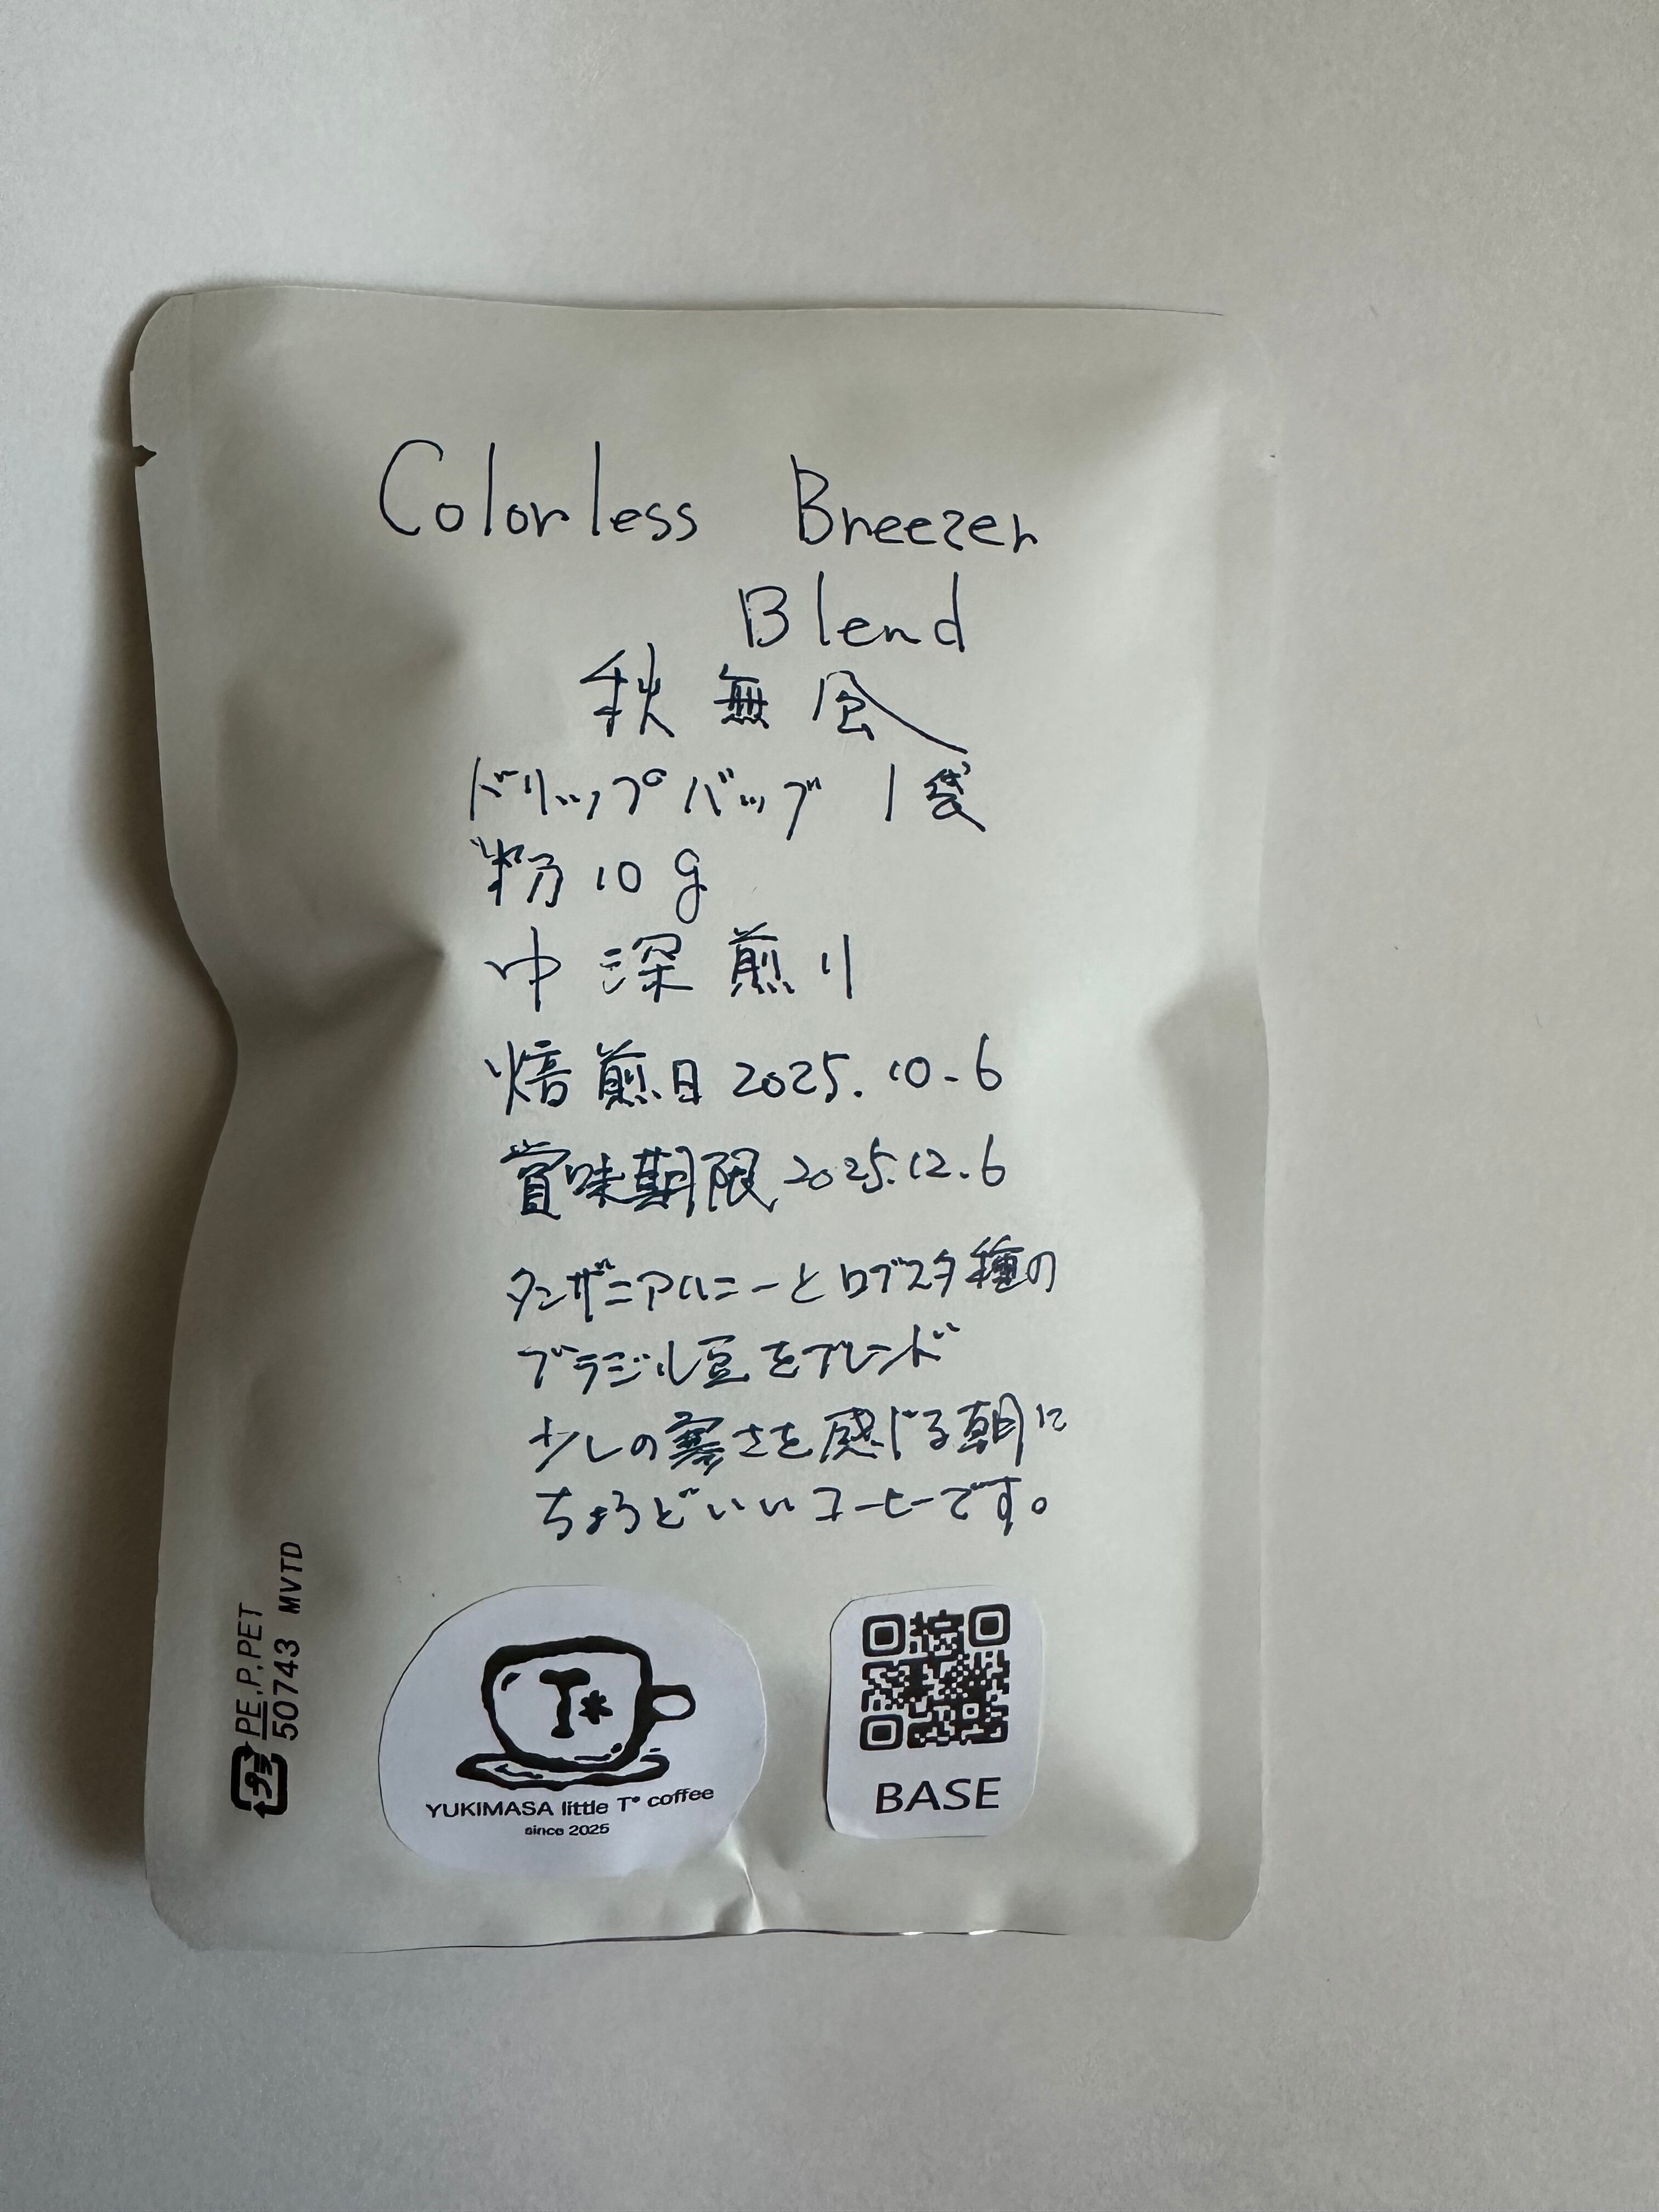 Colorless Breezer
Blend
秋無風
ドリップバッグ 1袋
粉10g
中深煎り
焙煎日 2025.10.6
賞味期限 2025.12.6
タンザニアルニーとロブスタ種の
ブラジル豆をブレンド
少しの寒さを感じる朝に
ちょうどいいコーヒーです。
プラ
PE,P,PET
50743 MVTD
T*
YUKIMASA little T* coffee
since 2025
BASE